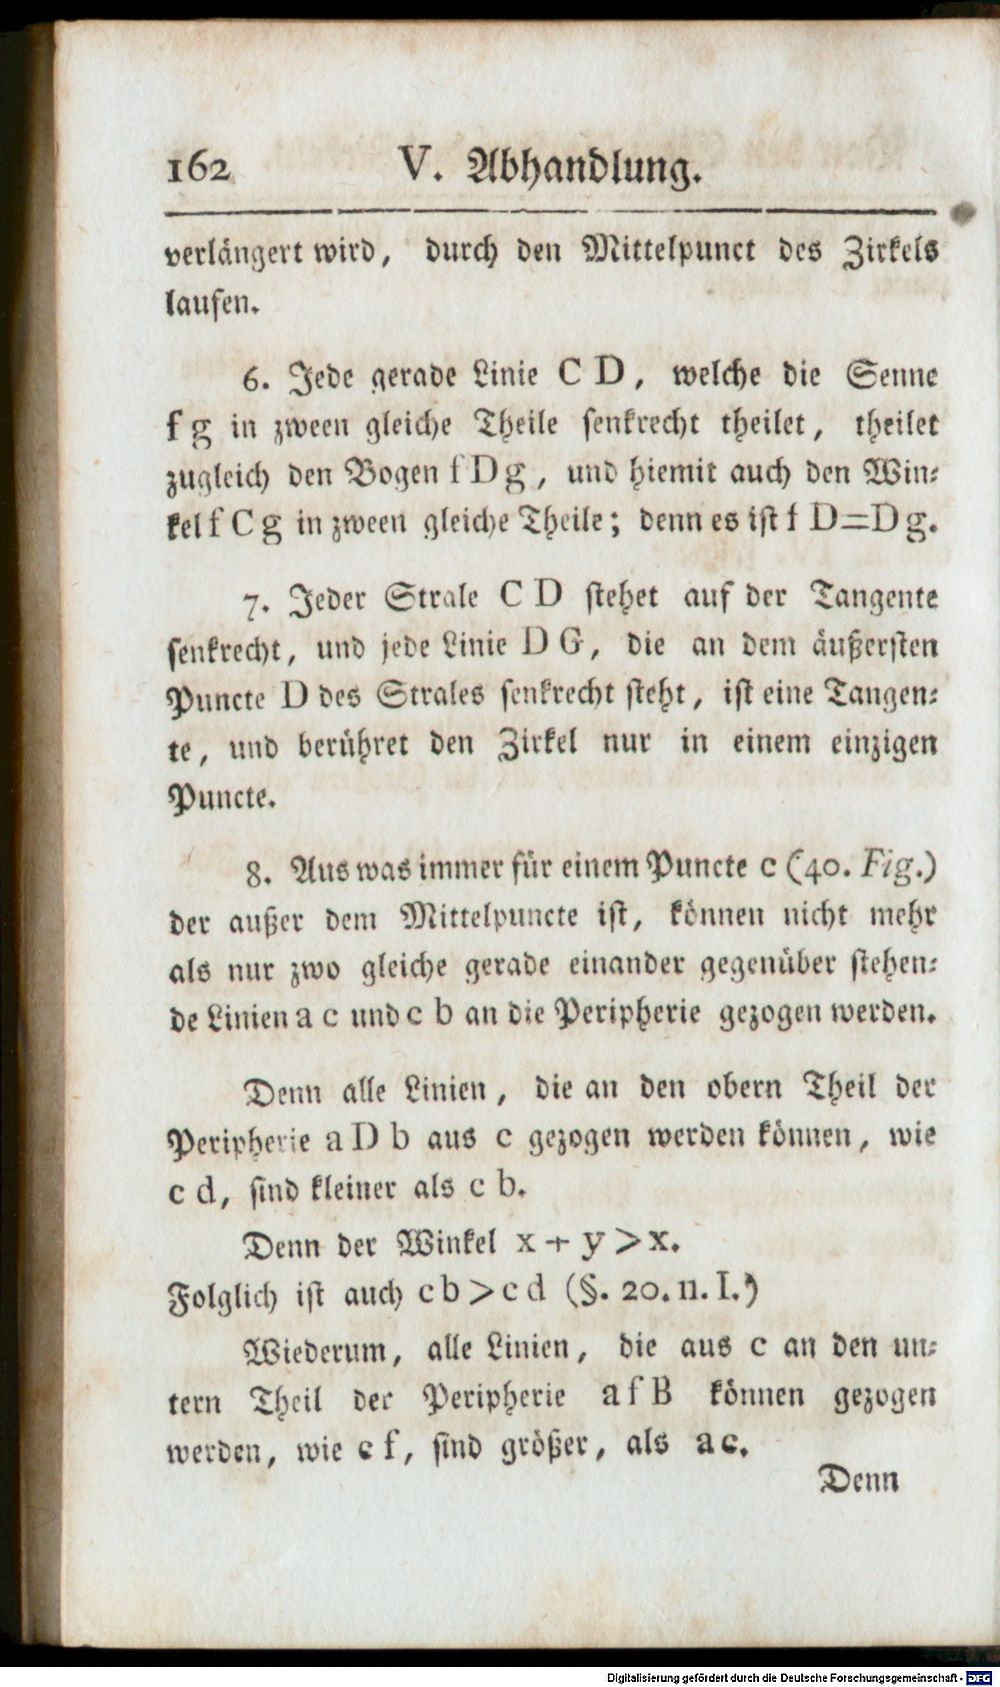 162 V. Abhandlung.
verlängert wird, durch den Mittelpunct des Zirkels
laufen.
6. Jede gerade Linie C D, welche die Senne
f g in zween gleiche Theile senkrecht theilet, theilet
zugleich den Bogen f D g, und hiemit auch den Win⸗
kel f C g in zween gleiche Theile; denn es ist f D=D g.
7. Jeder Strale C D stehet auf der Tangente
senkrecht, und jede Linie D G, die an dem äußersten
Puncte D des Strales senkrecht steht, ist eine Tangen⸗
te, und berühret den Zirkel nur in einem einzigen
Puncte.
8. Aus was immer für einem Puncte c (40. Fig.)
der außer dem Mittelpuncte ist, können nicht mehr
als nur zwo gleiche gerade einander gegenüber stehen⸗
de Linien a c und c b an die Peripherie gezogen werden.
Denn alle Linien, die an den obern Theil der
Peripherie a D b aus c gezogen werden können, wie
c d, sind kleiner als c b.
Denn der Winkel x + y > x.
Folglich ist auch c b > c d (§. 20. n. I.)
Wiederum, alle Linien, die aus c an den un⸗
tern Theil der Peripherie a f B können gezogen
werden, wie c f, sind größer, als a c.
Denn
Digitalisierung gefördert durch die Deutsche Forschungsgemeinschaft - DFG